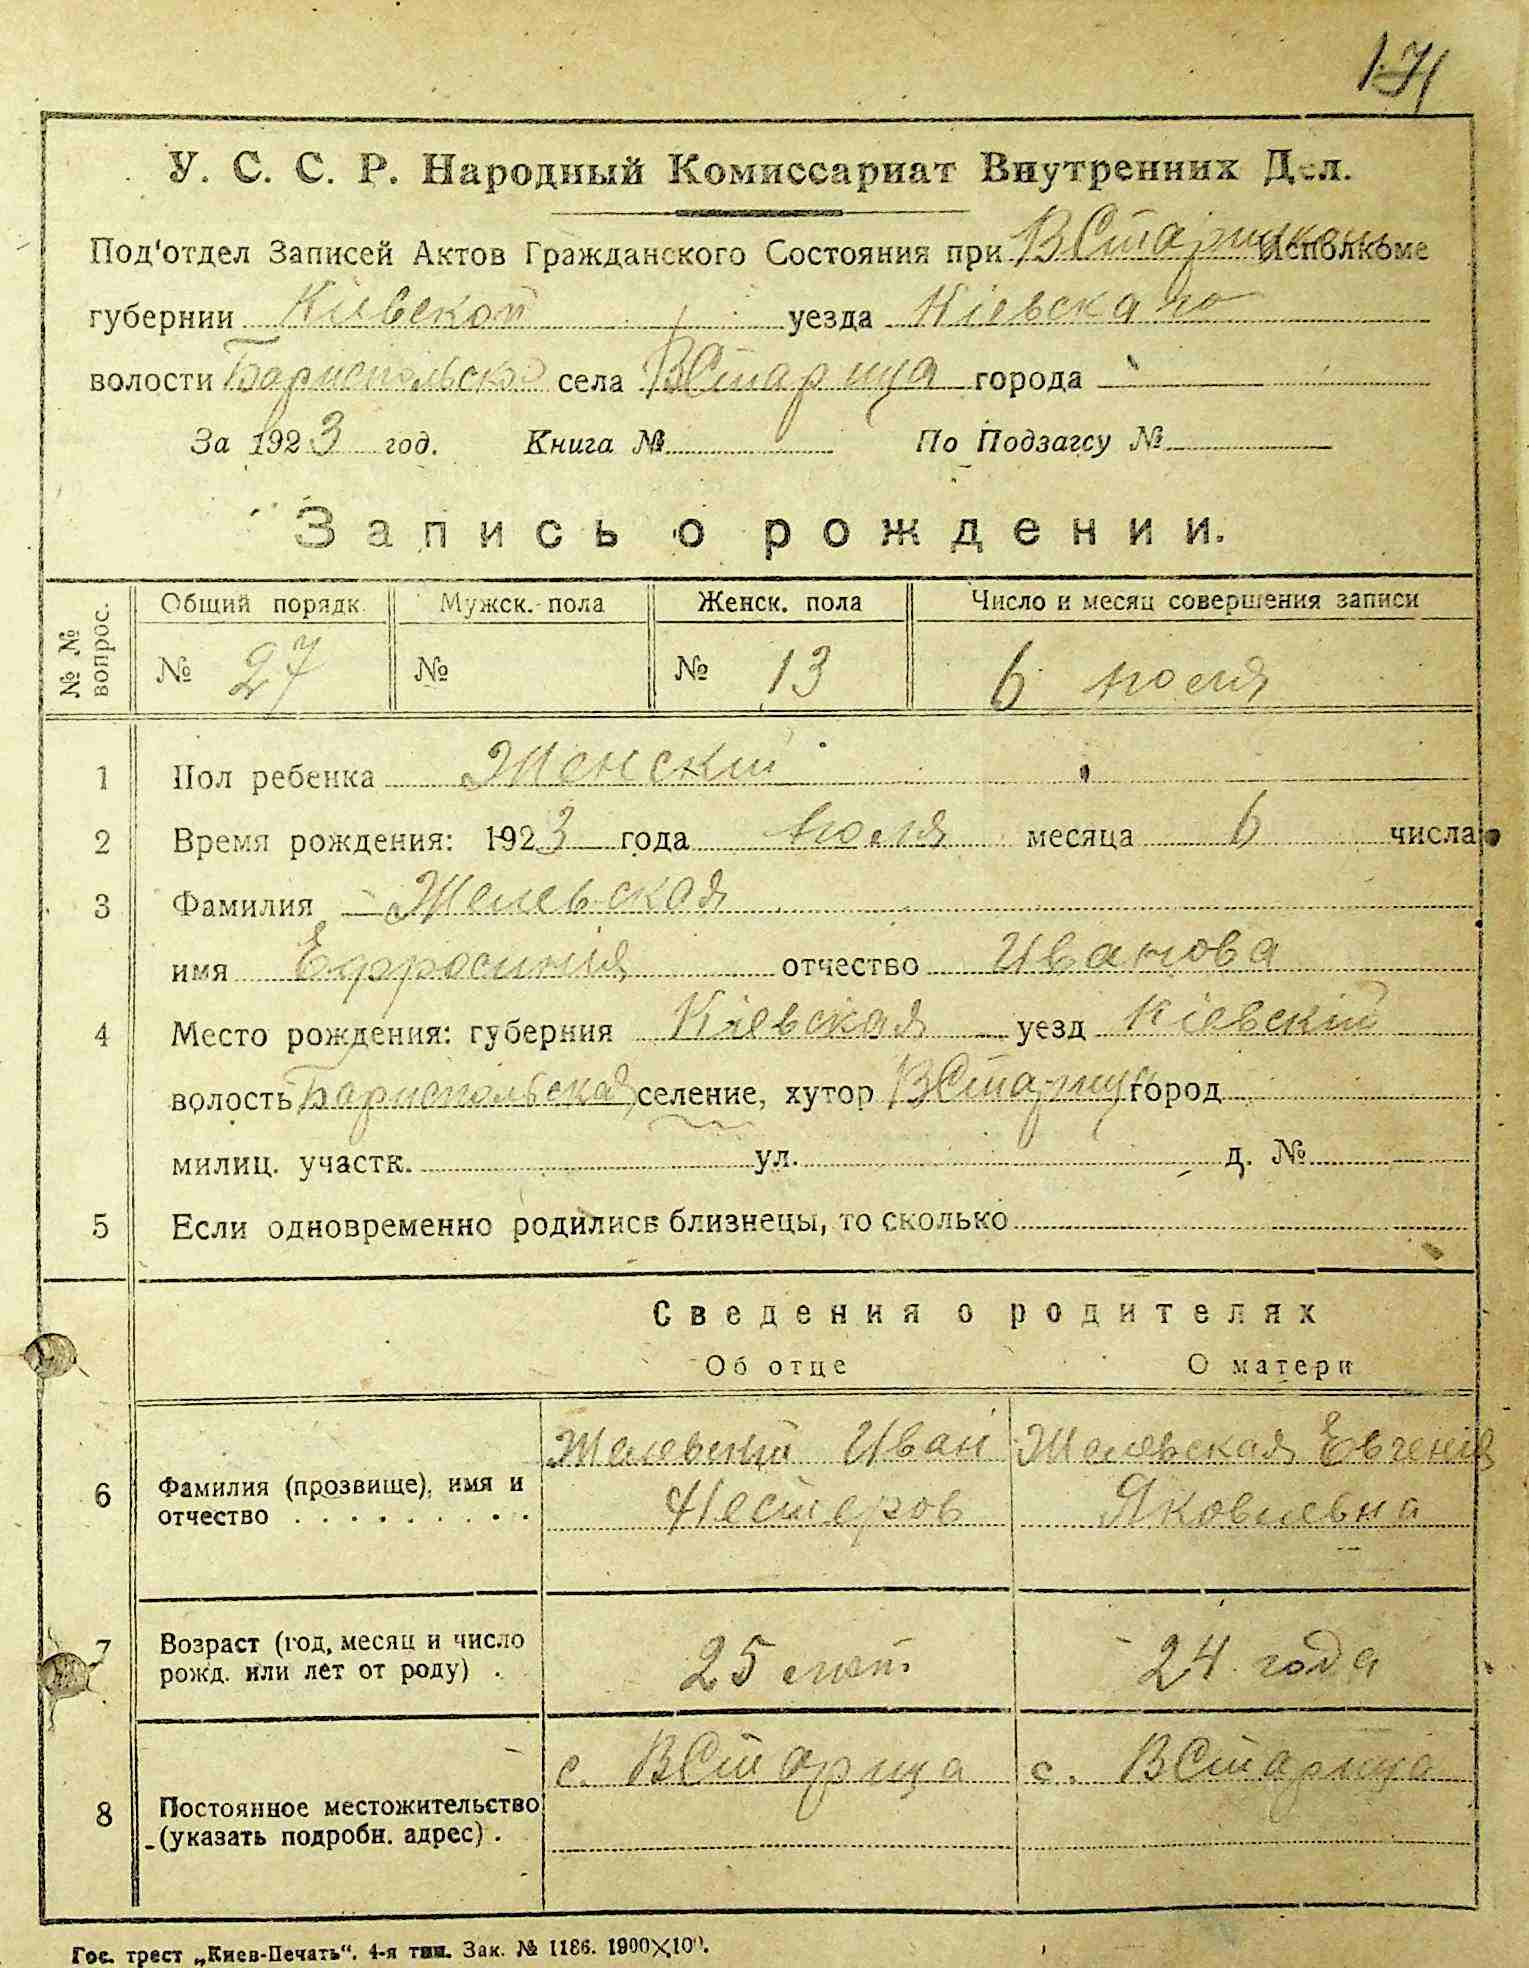 171
У. С. С. Р. Народный Комиссариат Внутренних Дел.
Под'отдел Записей Актов Гражданского Состояния при ВСтарицком Исполкоме
губернии Киевской уезда Кіевскаго
волости Бариспольской села ВСтарица города
За 1923 год. Книга № По Подзагсу №
Запись о рождении.
№ № вопрос. Общий порядк. Мужск. пола Женск. пола Число и месяц совершения записи
№ 27 № № 13 6 июля
1 Пол ребенка Женскій
2 Время рождения: 1923 года июля месяца 6 числа
3 Фамилия Желевская
имя Ефросинія отчество Иванова
4 Место рождения: губерния Кіевская уезд Кіевскій
волость Бариспольская селение, хутор ВСтарица город
милиц. участк. ул. д. №
5 Если одновременно родились близнецы, то сколько
Сведения о родителях
Об отце О матери
Желевский Иван Желевская Евгенія
6 Фамилия (прозвище), имя и
отчество . . . . . . . . . Нестеров Яковлевна
7 Возраст (год, месяц и число
рожд. или лет от роду) . 25 лет. 24 года
с. ВСтарица с. ВСтарица
8 Постоянное местожительство
(указать подробн. адрес) .
Гос. трест „Киев-Печать". 4-я тип. Зак. № 1186. 1900×100.